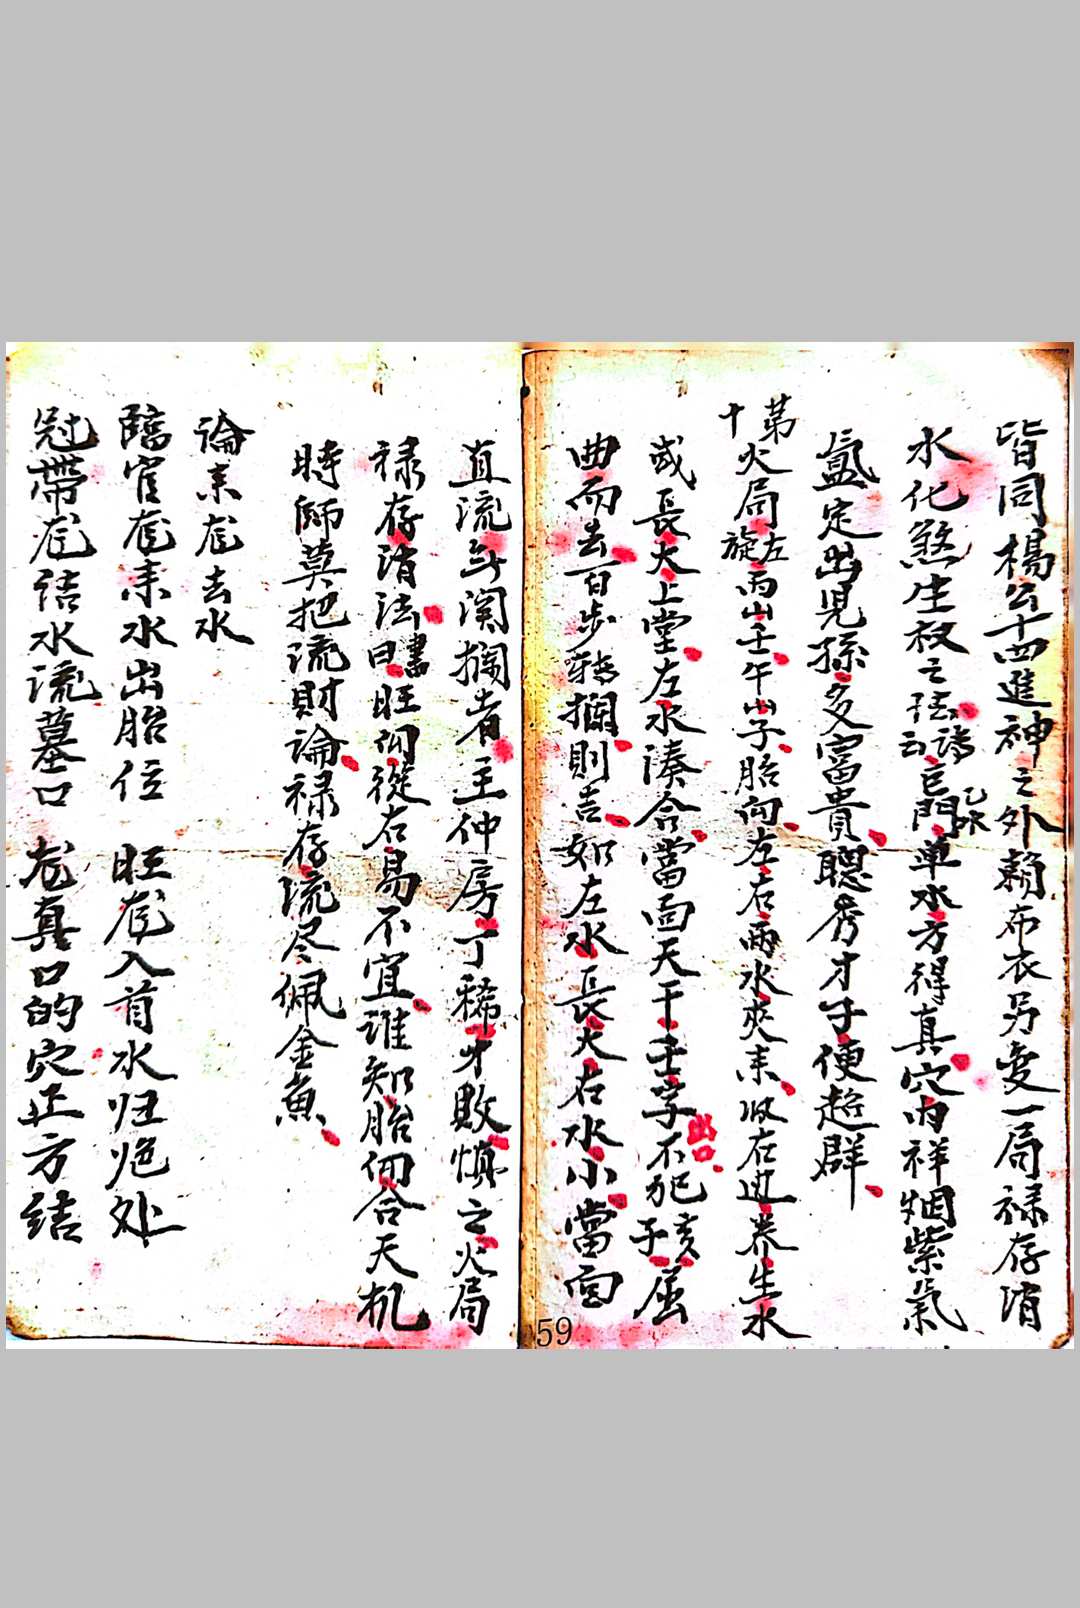 皆同楊公十四進神之外賴布衣另变一局禄存消
水化煞生权之法詩云官門乙水單水方得真穴内祥烟紫氣
氳定出児孫多富貴聰秀才子便超群
第十火局左旋丙山壬午山子胎向左右兩水夾耒收在边养生水
或長大上堂左水湊合當面天干壬字出口不犯子亥屈
曲而去百步轉攔則吉如左水長大右水小當面
59
直流無関攔者主仲房丁稀才敗慎之火局
禄存消法書曰旺向從右易不宜谁知胎向合天机
時師莫把流財論禄存流尽佩金魚
論耒龙去水
臨官龙耒水出胎位 旺龙入首水归绝处
冠帶龙结水流墓口 龙真口的穴正方结